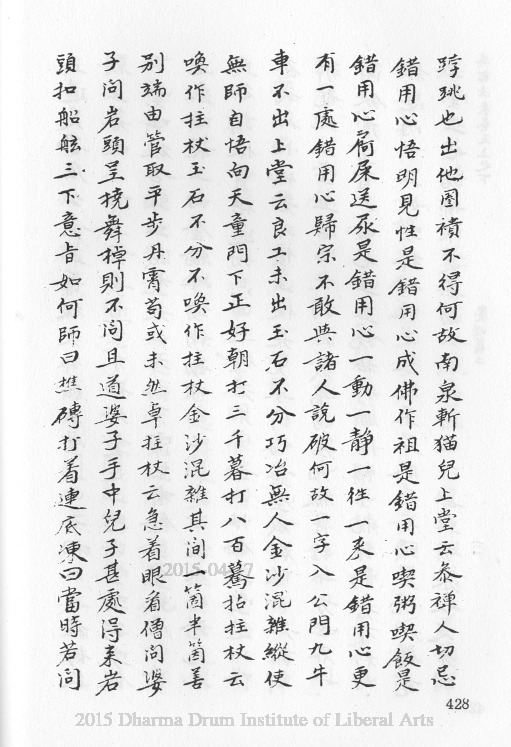 跨跳也出他圈䙡不得何故南泉斬猫兒上堂云叅禅人切忌
錯用心悟明見性是錯用心成佛作祖是錯用心喫粥喫飯是
錯用心屙屎送尿是錯用心一動一静一徃一來是錯用心更
有一處錯用心歸宗不敢與諸人說破何故一字入公門九牛
車不出上堂云良工未出玉石不分巧冶無人金沙混雜縱使
無師自悟向天童門下正好朝打三千暮打八百驀拈拄杖云
喚作拄杖玉石不分不喚作拄杖金沙混雜其间一箇半箇善
别端由管取平步丹霄苟或未然卓拄杖云急着眼看僧问婆
子问岩頭呈橈舞棹則不问且道婆子手中兒子甚處淂来岩
頭扣船舷三下意旨如何師曰燋磚打着連底凍曰當時若问
428
2015-04-27
2015 Dharma Drum Institute of Liberal Arts